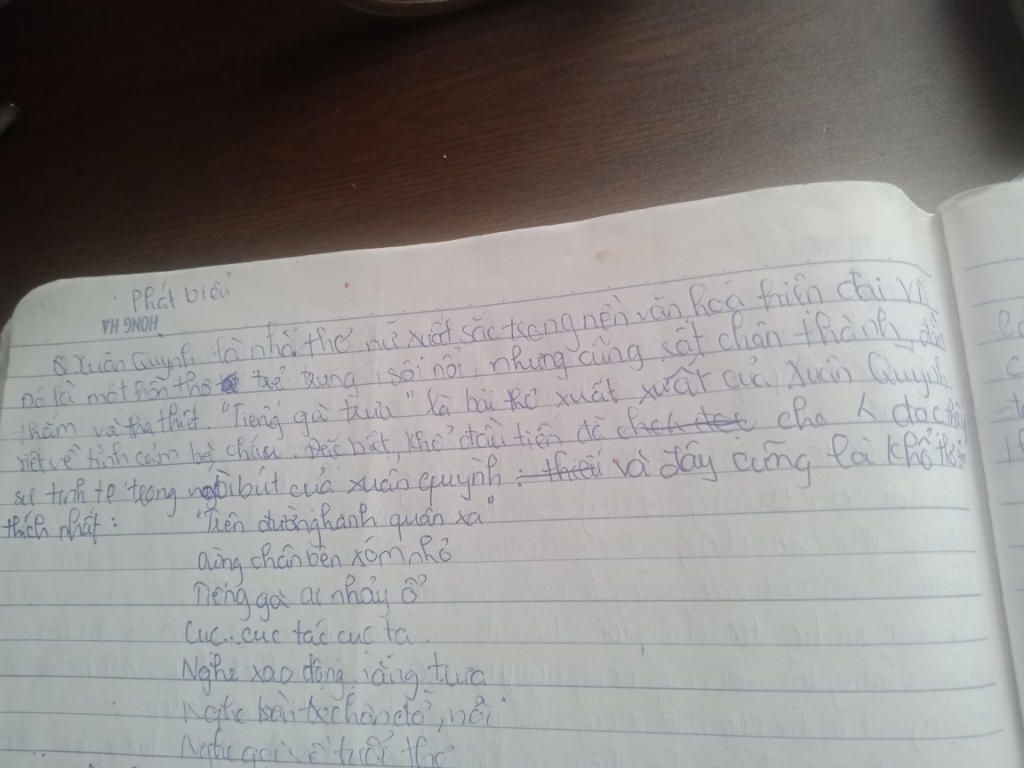 Phát biểu
HONG HA
Xuân Quỳnh là nhà thơ nữ xuất sắc trong nền văn hoá hiện đại VN
Đó là một hồn thơ trẻ trung, sôi nổi, nhưng cũng rất chân thành, đằm
thắm và tha thiết. "Tiếng gà trưa" là bài thơ xuất xuất của Xuân Quỳnh
viết về tình cảm bà cháu. Đặc biệt, khổ đầu tiên đã cho đọc
sự tinh tế trong bút của xuân quỳnh và đây cũng là khổ
thích nhất:
"Trên đường hành quân xa"
Dừng chân bên xóm nhỏ
Tiếng gà ai nhảy ổ
Cục.. cục tác cục ta
Nghe xao động nắng trưa
Nghe bàn chân đỡ, nỗi
Nghe gọi về tuổi thơ